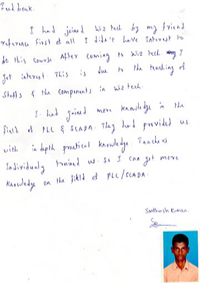 Feed back.
I had joined wiztech by my friend
reference first of all I didn't have interest to
do this course After coming to wiztech I
got interest This is due to the teaching of
Staffs & the components in wiztech.
I had joined more knowledge in the
field of PLC & SCADA. They had provided us
with indepth practical knowledge Teachers
Individualy trained us. So I can get more
knowledge on the field of PLC/SCADA.
Santhosh Kumar.